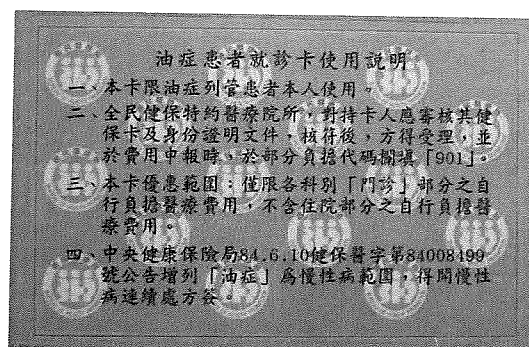 油症患者就診卡使用說明
一、本卡限油症列管患者本人使用。
二、全民健保特約醫療院所，對持卡人應審核其健
保卡及身份證明文件，核符後，方得受理，並
於費用申報時，於部分負擔代碼欄填「901」。
三、本卡優惠範圍：僅限各科別「門診」部分之自
行負擔醫療費用，不含住院部分之自行負擔醫
療費用。
四、中央健康保險局84.6.10健保醫字第84008499
號公告增列「油症」為慢性病範圍，得開慢性
病連續處方箋。